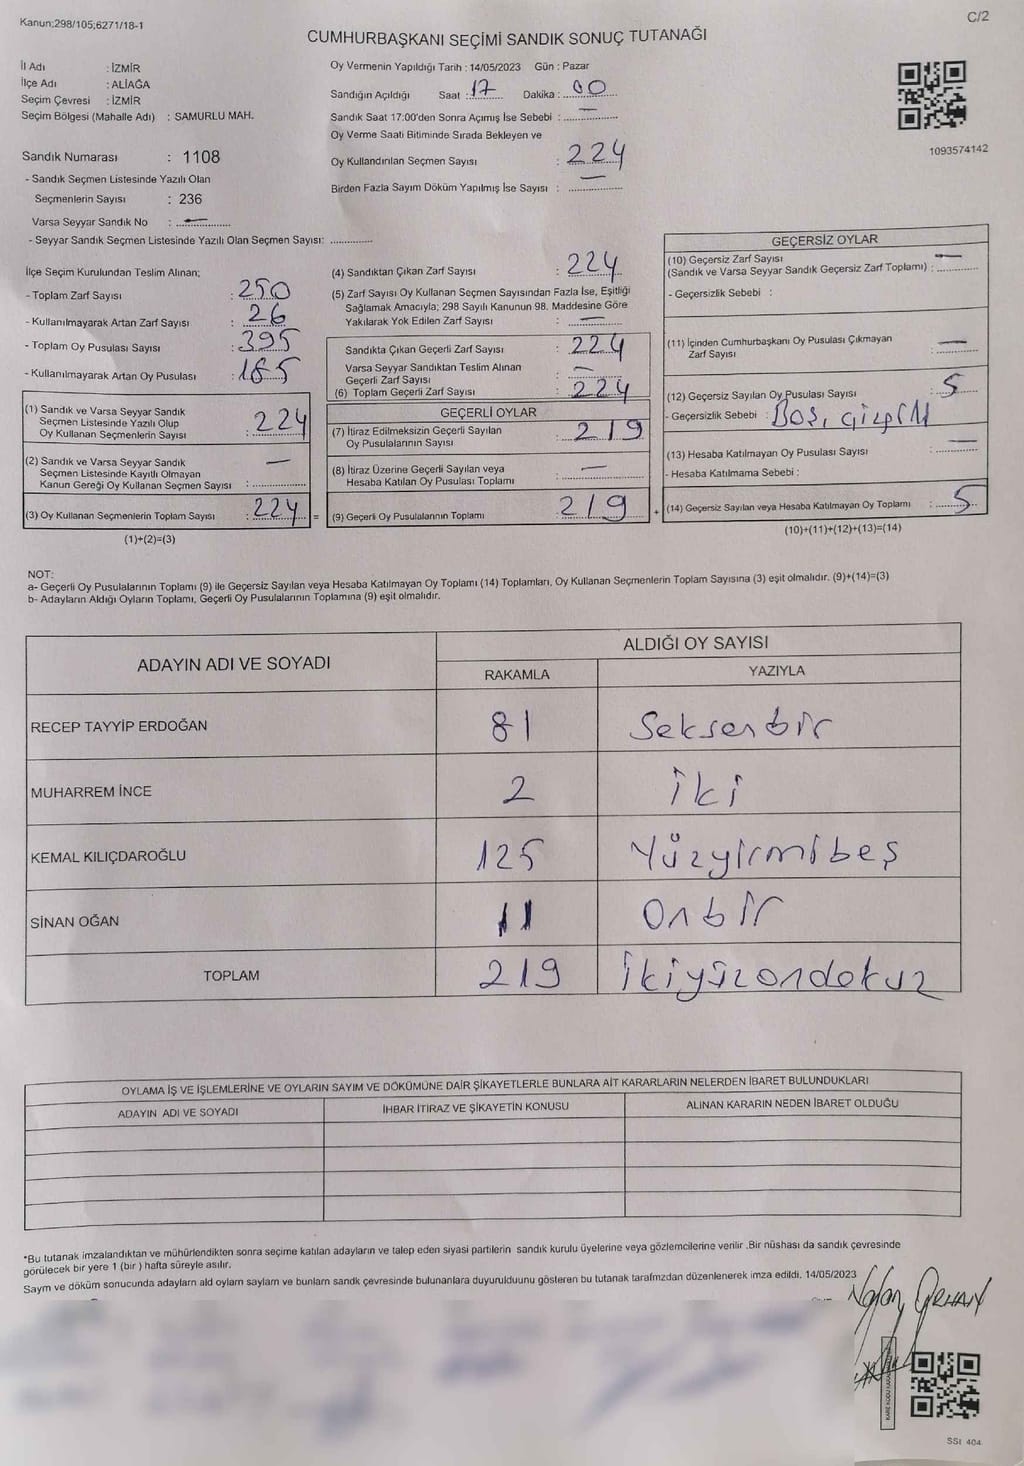 Kanun;298/105;6271/18-1
C/2
CUMHURBAŞKANI SEÇİMİ SANDIK SONUÇ TUTANAĞI
İl Adı : İZMİR
İlçe Adı : ALİAĞA
Seçim Çevresi : İZMİR
Seçim Bölgesi (Mahalle Adı) : SAMURLU MAH.
Sandık Numarası : 1108
- Sandık Seçmen Listesinde Yazılı Olan
Seçmenlerin Sayısı : 236
Varsa Seyyar Sandık No : —
- Seyyar Sandık Seçmen Listesinde Yazılı Olan Seçmen Sayısı: ..............
Oy Vermenin Yapıldığı Tarih : 14/05/2023 Gün : Pazar
Sandığın Açıldığı Saat : 17 Dakika : 00
Sandık Saat 17:00'den Sonra Açımış İse Sebebi : —
Oy Verme Saati Bitiminde Sırada Bekleyen ve
Oy Kullandırılan Seçmen Sayısı : 224
Birden Fazla Sayım Döküm Yapılmış İse Sayısı : —
1093574142
İlçe Seçim Kurulundan Teslim Alınan;
- Toplam Zarf Sayısı : 250
- Kullanılmayarak Artan Zarf Sayısı : 26
- Toplam Oy Pusulası Sayısı : 395
- Kullanılmayarak Artan Oy Pusulası : 185
(1) Sandık ve Varsa Seyyar Sandık
Seçmen Listesinde Yazılı Olup
Oy Kullanan Seçmenlerin Sayısı : 224
(2) Sandık ve Varsa Seyyar Sandık
Seçmen Listesinde Kayıtlı Olmayan
Kanun Gereği Oy Kullanan Seçmen Sayısı : —
(3) Oy Kullanan Seçmenlerin Toplam Sayısı : 224 =
(1)+(2)=(3)
(4) Sandıktan Çıkan Zarf Sayısı : 224
(5) Zarf Sayısı Oy Kullanan Seçmen Sayısından Fazla İse, Eşitliği
Sağlamak Amacıyla; 298 Sayılı Kanunun 98. Maddesine Göre
Yakılarak Yok Edilen Zarf Sayısı : —
Sandıkta Çıkan Geçerli Zarf Sayısı : 224
Varsa Seyyar Sandıktan Teslim Alınan
Geçerli Zarf Sayısı : —
(6) Toplam Geçerli Zarf Sayısı : 224
GEÇERLİ OYLAR
(7) İtiraz Edilmeksizin Geçerli Sayılan
Oy Pusulalarının Sayısı : 219
(8) İtiraz Üzerine Geçerli Sayılan veya
Hesaba Katılan Oy Pusulası Toplamı : —
(9) Geçerli Oy Pusulalarının Toplamı : 219 +
GEÇERSİZ OYLAR
(10) Geçersiz Zarf Sayısı
(Sandık ve Varsa Seyyar Sandık Geçersiz Zarf Toplamı) : —
- Geçersizlik Sebebi :
(11) İçinden Cumhurbaşkanı Oy Pusulası Çıkmayan
Zarf Sayısı : —
(12) Geçersiz Sayılan Oy Pusulası Sayısı : 5
- Geçersizlik Sebebi : BOŞ,
(13) Hesaba Katılmayan Oy Pusulası Sayısı : —
- Hesaba Katılmama Sebebi :
(14) Geçersiz Sayılan veya Hesaba Katılmayan Oy Toplamı : 5
(10)+(11)+(12)+(13)=(14)
NOT:
a- Geçerli Oy Pusulalarının Toplamı (9) ile Geçersiz Sayılan veya Hesaba Katılmayan Oy Toplamı (14) Toplamları, Oy Kullanan Seçmenlerin Toplam Sayısına (3) eşit olmalıdır. (9)+(14)=(3)
b- Adayların Aldığı Oyların Toplamı, Geçerli Oy Pusulalarının Toplamına (9) eşit olmalıdır.
ADAYIN ADI VE SOYADI
ALDIĞI OY SAYISI
RAKAMLA YAZIYLA
RECEP TAYYİP ERDOĞAN 81 Seksenbir
MUHARREM İNCE 2 iki
KEMAL KILIÇDAROĞLU 125 Yüzyirmibeş
SİNAN OĞAN 11 Onbir
TOPLAM 219 İkiyüzondokuz
OYLAMA İŞ VE İŞLEMLERİNE VE OYLARIN SAYIM VE DÖKÜMÜNE DAİR ŞİKAYETLERLE BUNLARA AİT KARARLARIN NELERDEN İBARET BULUNDUKLARI
ADAYIN ADI VE SOYADI İHBAR İTİRAZ VE ŞİKAYETİN KONUSU ALINAN KARARIN NEDEN İBARET OLDUĞU
*Bu tutanak imzalandıktan ve mühürlendikten sonra seçime katılan adayların ve talep eden siyasi partilerin sandık kurulu üyelerine veya gözlemcilerine verilir .Bir nüshası da sandık çevresinde
görülecek bir yere 1 (bir ) hafta süreyle asılır.
Saym ve döküm sonucunda adaylarn ald oylarn saylarn ve bunlarn sandk çevresinde bulunanlara duyurulduunu gösteren bu tutanak tarafmzdan düzenlenerek imza edildi. 14/05/2023
ORHAN
SSt 404